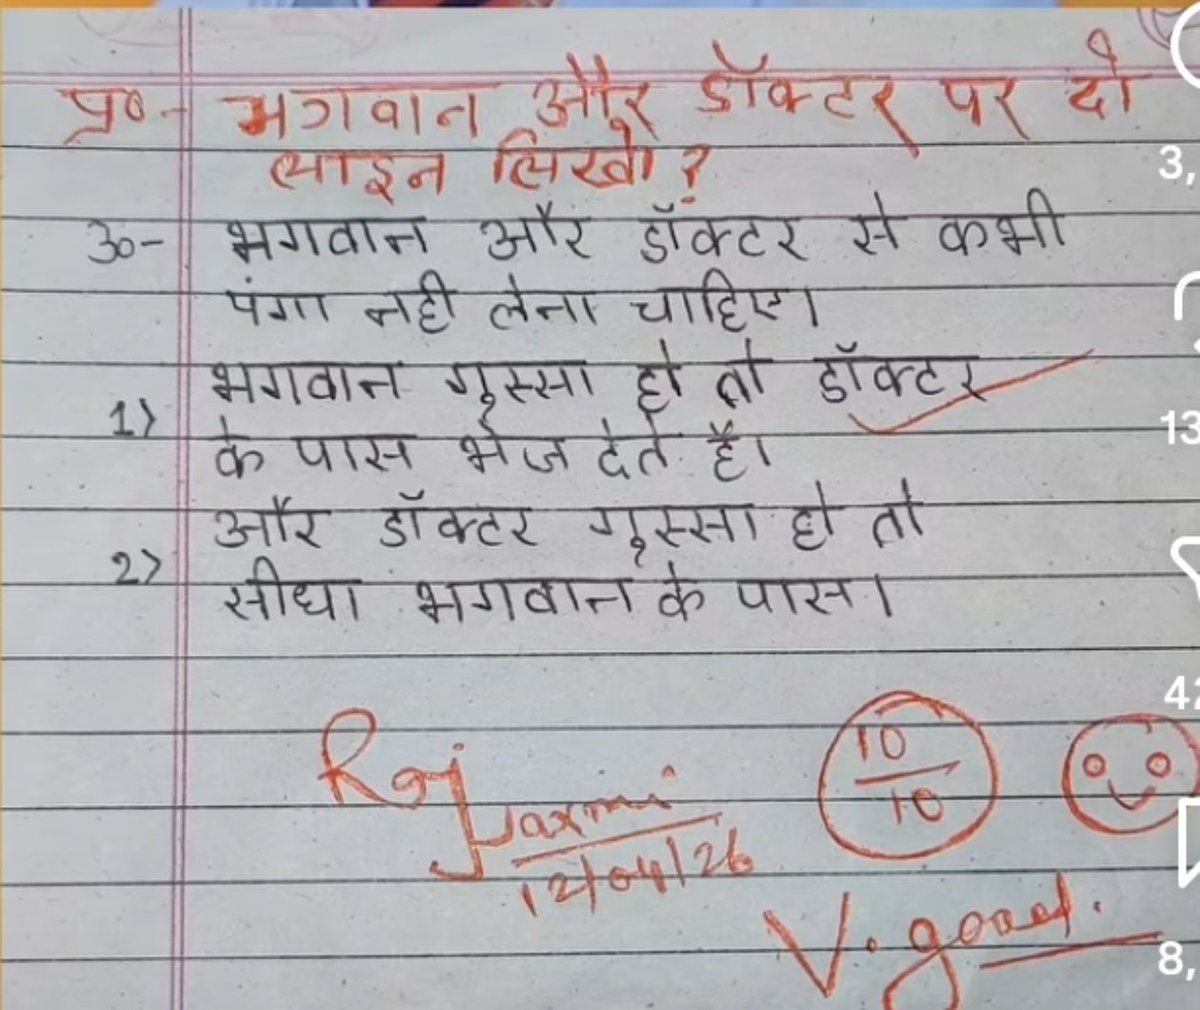 प्र०- भगवान और डॉक्टर पर दो
लाइन लिखो?
उ०- भगवान और डॉक्टर से कभी
पंगा नही लेना चाहिए।
1) भगवान गुस्सा हो तो डॉक्टर
के पास भेज देते है।
2) और डॉक्टर गुस्सा हो तो
सीधा भगवान के पास।
Raj
Laxmi
12/04/26
10
10
V. good.
3,
13
42
8,